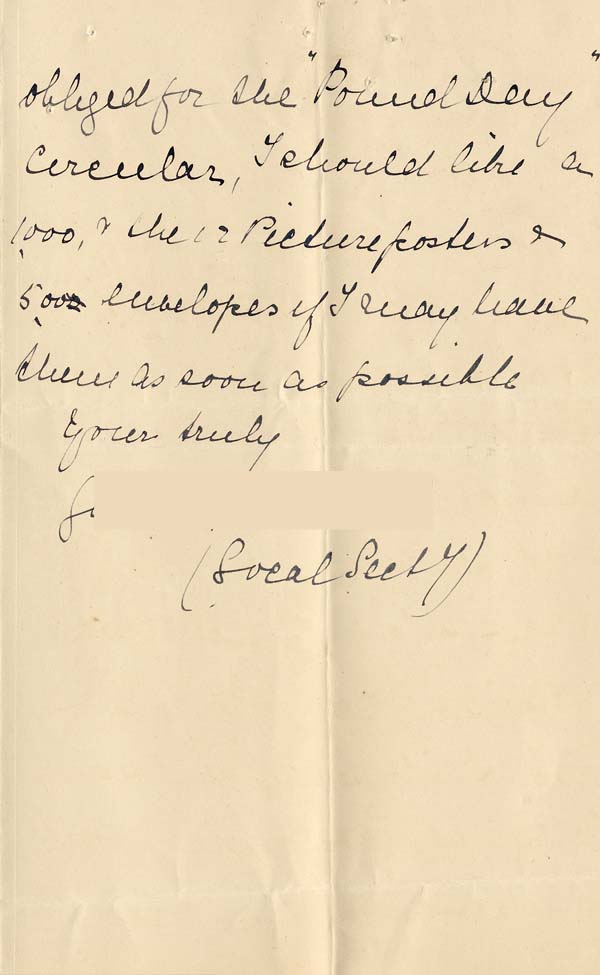 obliged for the "Pound Day"
Circular, I should like a
1000, & the 12 Picture posters &
500 envelopes if I may have
them as soon as possible
Your truly
(Local Secty)